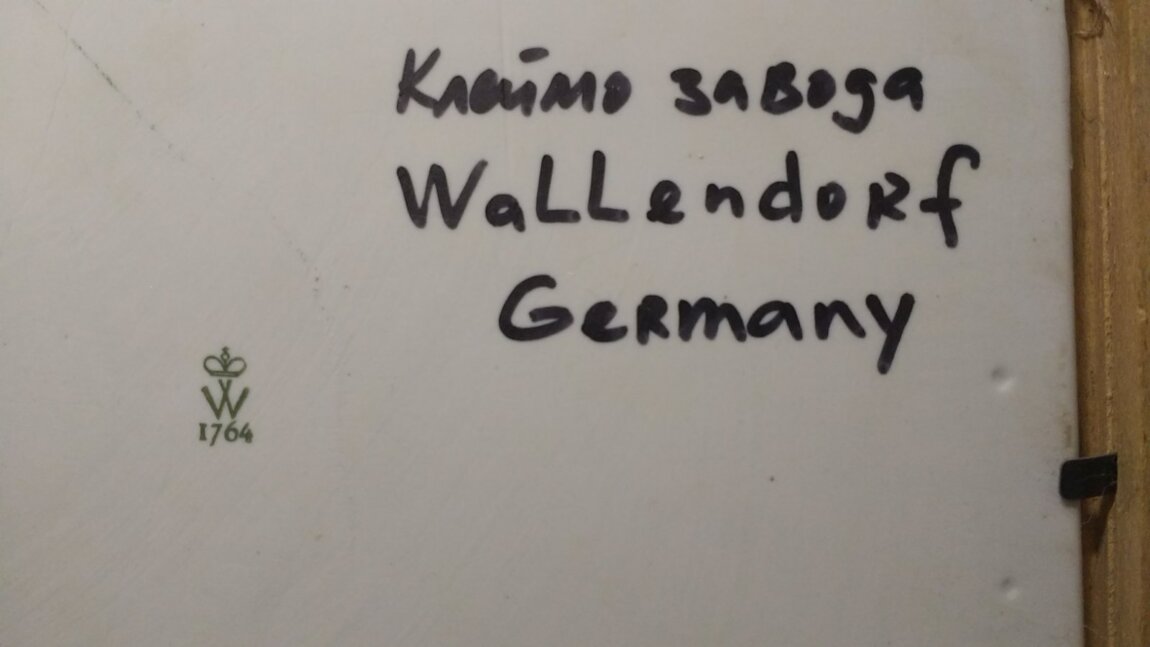 Клеймо завода
Wallendorf
Germany
W
1764